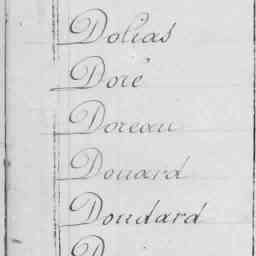 Dolias
Doré
Doreau
Douard
Doudard
D